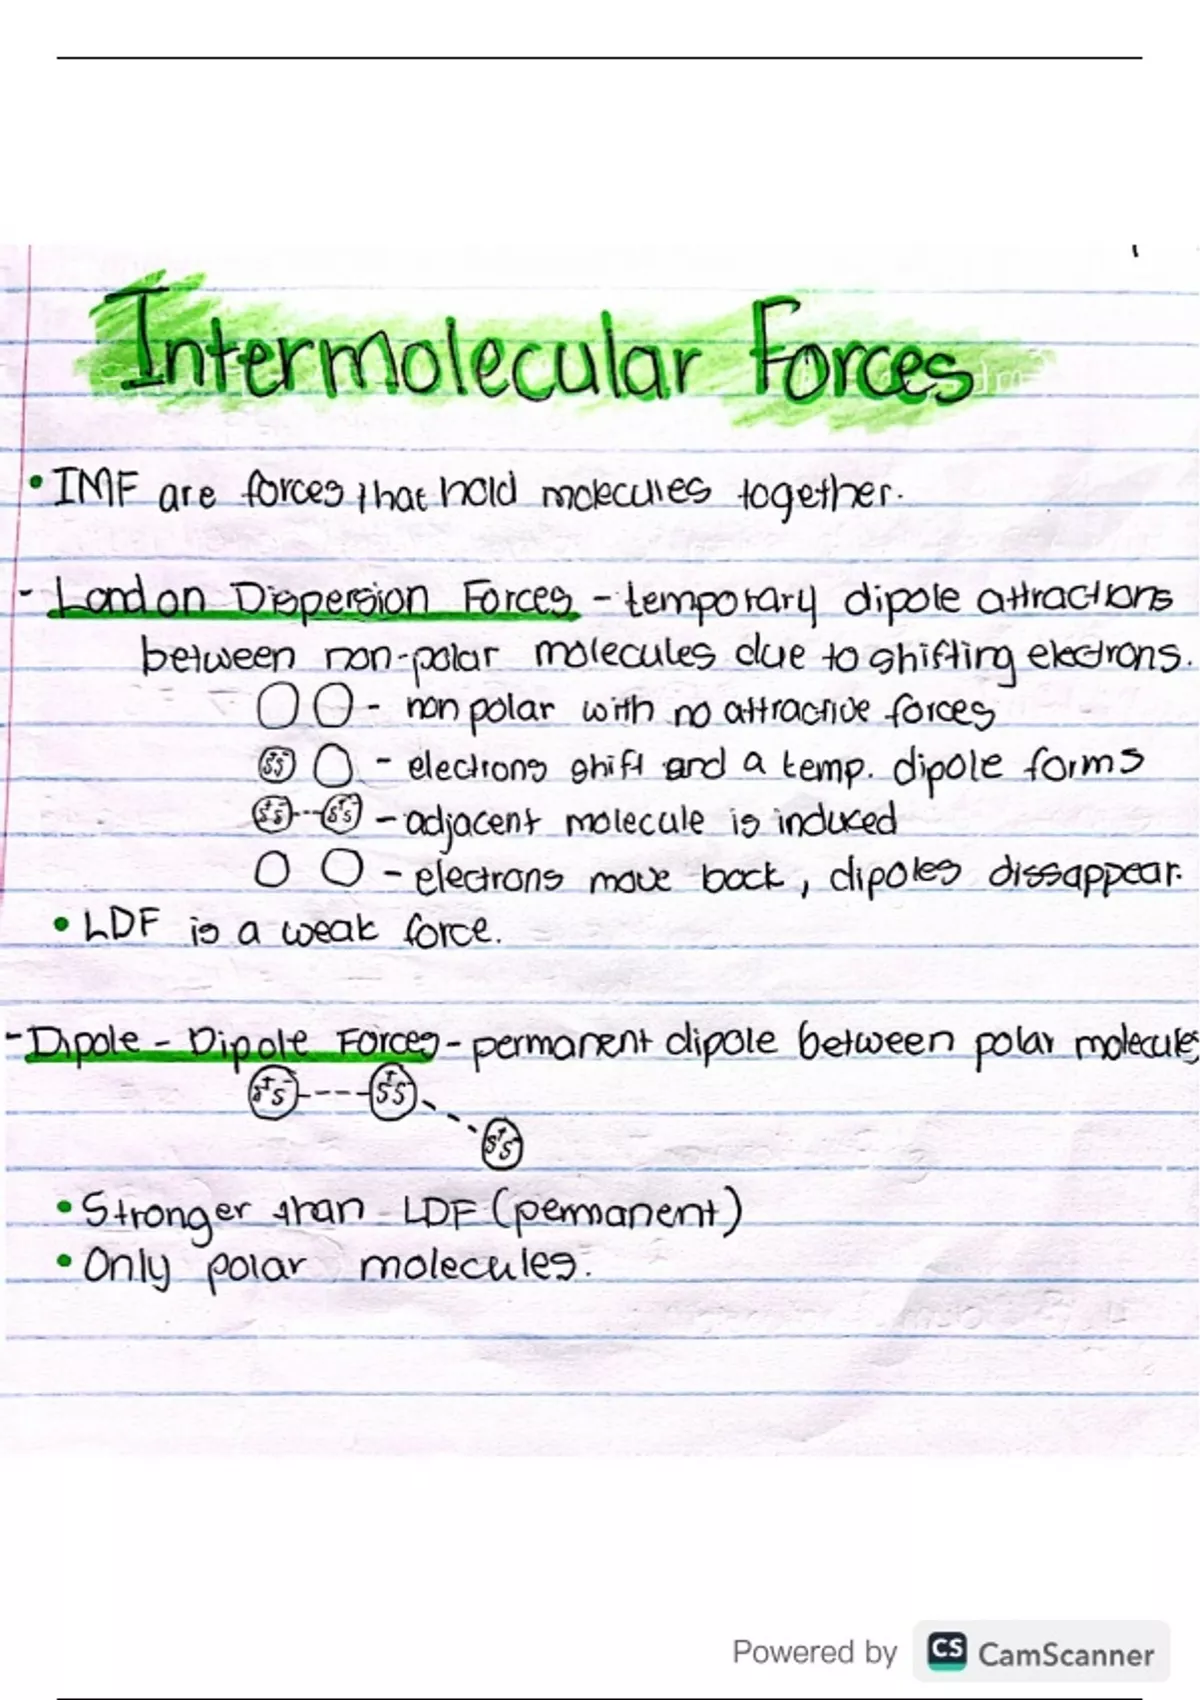 Intermolecular Forces
• IMF are forces that hold molecules together.
- London Dispersion Forces - temporary dipole attractions
between non-polar molecules due to shifting electrons.
- non polar with no attractive forces
δ+ δ- - electrons shift and a temp. dipole forms
δ+ δ- --- δ+ δ- - adjacent molecule is induced
- electrons move back, dipoles dissappear.
• LDF is a weak force.
- Dipole - Dipole Forces - permanent dipole between polar molecules
δ+ δ- --- δ+ δ- --- δ+ δ-
• Stronger than LDF (permanent)
• Only polar molecules.
Powered by CS CamScanner